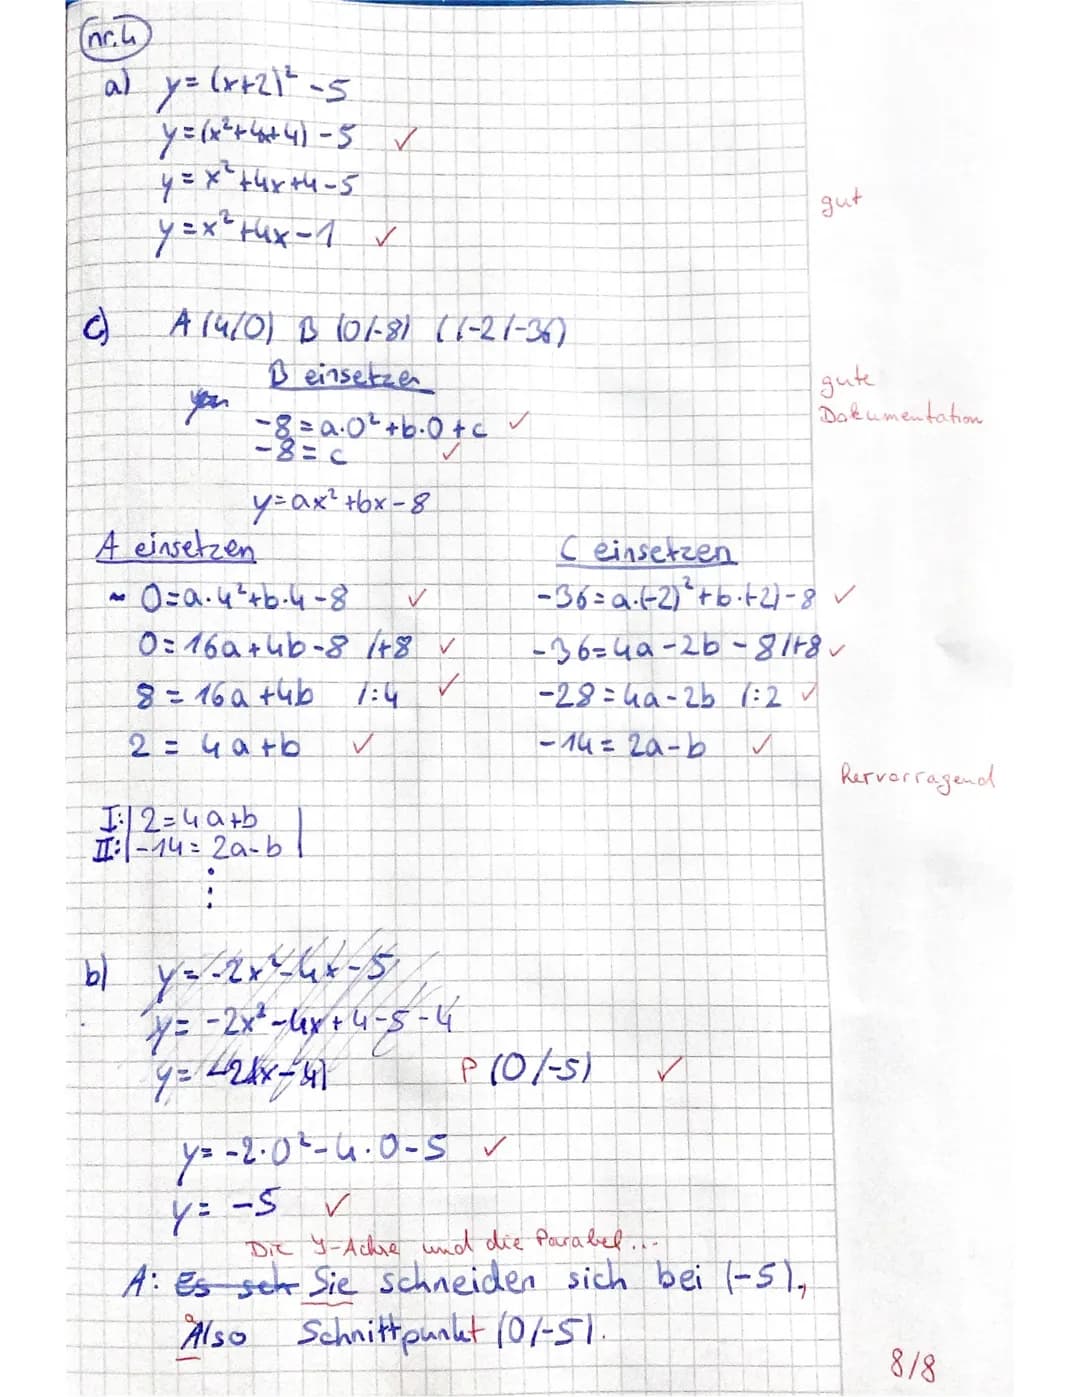 nr. 4
a) y = (x+2)² - 5
y = (x² + 4x + 4) - 5 ✓
y = x² + 4x + 4 - 5
gut
y = x² + 4x - 1 ✓
c) A (4/0) B (0/-8) C (-2/-36)
B einsetzen
gute
Dokumentation
-8 = a·0² + b·0 + c ✓
-8 = c ✓
y = ax² + bx - 8
A einsetzen C einsetzen
0 = a·4² + b·4 - 8 ✓ -36 = a·(-2)² + b·(-2) - 8 ✓
0 = 16a + 4b - 8 /+8 ✓ -36 = 4a - 2b - 8 /+8 ✓
8 = 16a + 4b /:4 ✓ -28 = 4a - 2b /:2 ✓
2 = 4a + b ✓ -14 = 2a - b ✓
Hervorragend
I: | 2 = 4a + b |
II: | -14 = 2a - b |
⋮
b) y = -2x² - 4x - 5
y = -2x² - 4x + 4 - 5 - 4
P (0/-5) ✓
y = -2·0² - 4·0 - 5 ✓
y = -5 ✓
Die Y-Achse und die Parabel...
A: Es sch Sie schneiden sich bei (-5),
Also Schnittpunkt (0/-5).
8/8